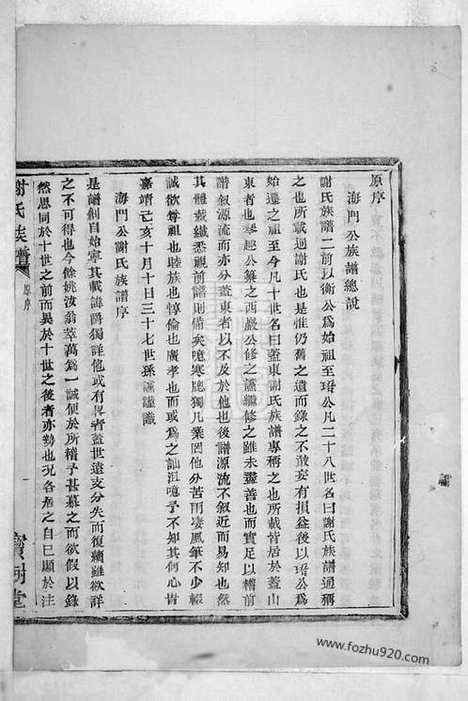 原序
海門公族譜總說
謝氏族譜二前以衡公為始祖至瑃公凡二十八世名曰謝氏族譜通稱
之也所載迥謝氏也是惟仍舊之遺而錄之不敢妄有損益後以瑃公為
始遷之祖至今凡十世名曰蓋東謝氏族譜專稱之也所載皆居於蓋山
東者也琴趣公纂之西巖公修之謹繼修之雖未盡善也而實足以稽前
譜叙源流而亦分蓋東者以不及於他也後譜源流不叙近而易知也然
其體裁纖悉視前譜則備矣噫寒牕獨几業罔他分苦雨凄風筆不少輟
誠欲尊祖也睦族也惇倫也廣孝也而或為之訕沮噫予不知其何心肯
嘉靖己亥十月十日三十七世孫謹識
海門公謝氏族譜序
是譜創自始寧其載海門獨詳他或有畧者蓋世遠支分失而復續雖欲詳
之不可得也今餘姚汝翁萃萬為一誠便於所稽予甚慕之而欲假以錄
然恩同於十世之前而異於十世之後者亦勢也况各居之自已顯於注
謝氏族譜
原序
一
寶樹堂
www.fozhu920.com